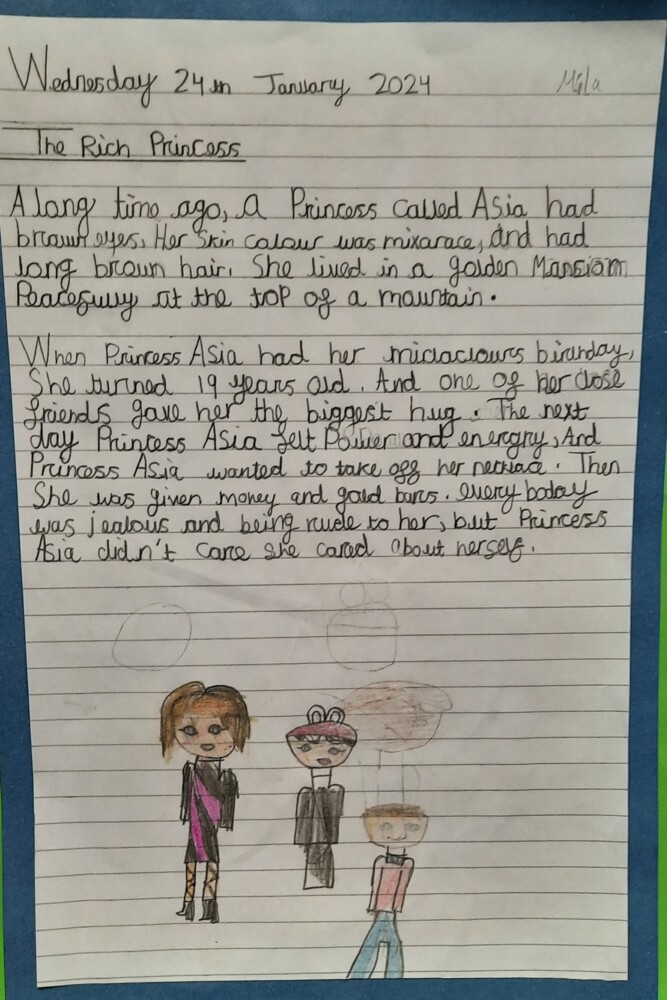 Wednesday 24th January 2024
Mila
The Rich Princess
A long time ago, a Princess called Asia had
brown eyes. Her skin colour was mixarace, and had
long brown hair. She lived in a golden Mansion
Peacefully at the top of a mountain.
When Princess Asia had her midaclours birthday,
She turned 19 years old. And one of her close
friends gave her the biggest hug. The next
day Princess Asia felt Power and energry, And
Princess Asia wanted to take off her necklace. Then
She was given money and gold bars. every boday
was jealous and being rude to her, but Princess
Asia didn't care she cared about herself.